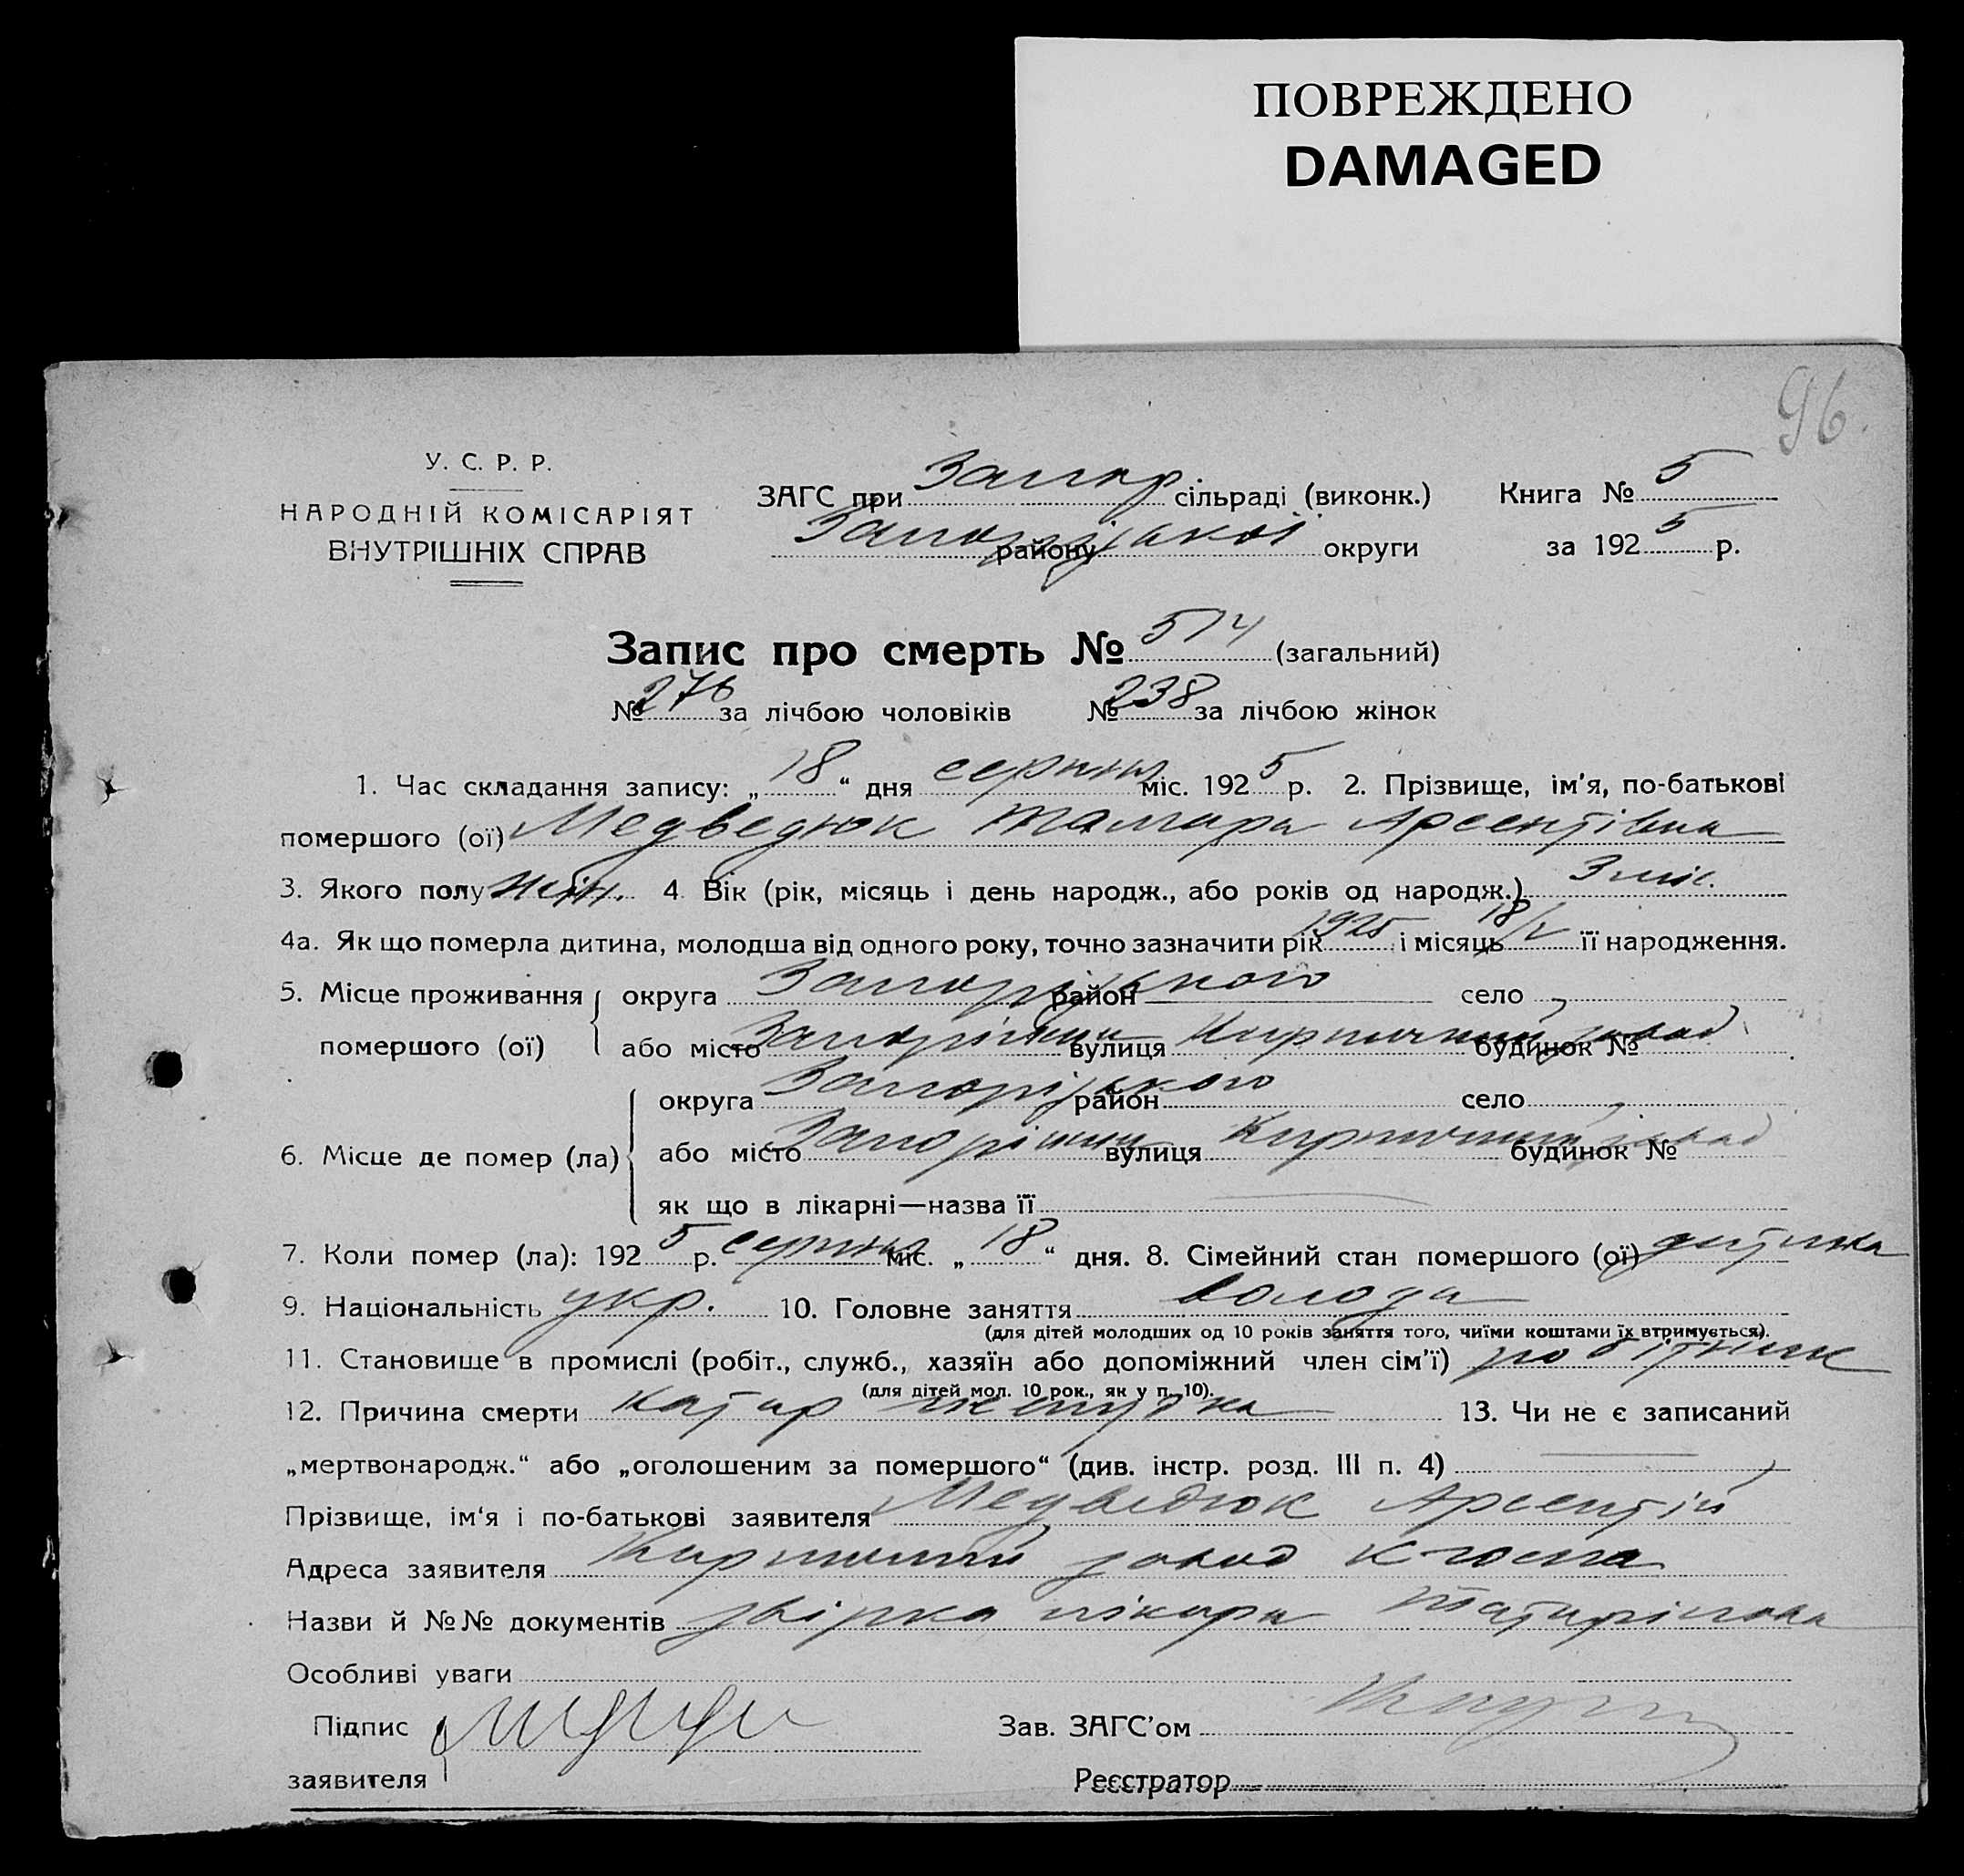 ПОВРЕЖДЕНО
DAMAGED
96.
У. С. Р. Р.
НАРОДНІЙ КОМІСАРІЯТ
ВНУТРІШНІХ СПРАВ
ЗАГС при Запор. сільраді (виконк.)
Запорізької району округи
Книга № 5
за 1925 р.
Запис про смерть № 514 (загальний)
№ 276 за лічбою чоловіків № 238 за лічбою жінок
1. Час складання запису: „18“ дня серпня міс. 1925 р. 2. Прізвище, ім'я, по-батькові
помершого (ої) Медведюк Тамара Арсентівна
3. Якого полу жін. 4 Вік (рік, місяць і день народж., або років од народж.) 3 міс.
4а. Як що померла дитина, молодша від одного року, точно зазначити рік 1925 і місяць 18/V її народження.
5. Місце проживання помершого (ої) округа Запорізького район село
або місто Запоріжжя вулиця Кирпичний завод будинок №
6. Місце де помер (ла) округа Запорізького район село
або місто Запоріжжя вулиця Кирпичний завод будинок №
як що в лікарні—назва її
7. Коли помер (ла): 1925 р. серпня міс. „18“ дня. 8. Сімейний стан помершого (ої) дитина
9. Національність укр. 10. Головне заняття
(для дітей молодших од 10 років заняття того, чиїми коштами їх втримується).
11. Становище в промислі (робіт., служб., хазяїн або допоміжний член сім'ї) робітник
(для дітей мол. 10 рок., як у п. 10).
12. Причина смерти катар шлунка 13. Чи не є записаний
„мертвонародж.“ або „оголошеним за помершого“ (див. інстр. розд. III п. 4)
Прізвище, ім'я і по-батькові заявителя Медведюк Арсентій
Адреса заявителя Кирпичний завод
Назви й №№ документів лікаря
Особливі уваги
Підпис заявителя
Зав. ЗАГС'ом
Реєстратор